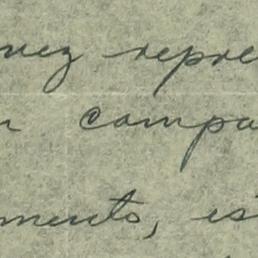 nez repre
n compa
mento, es